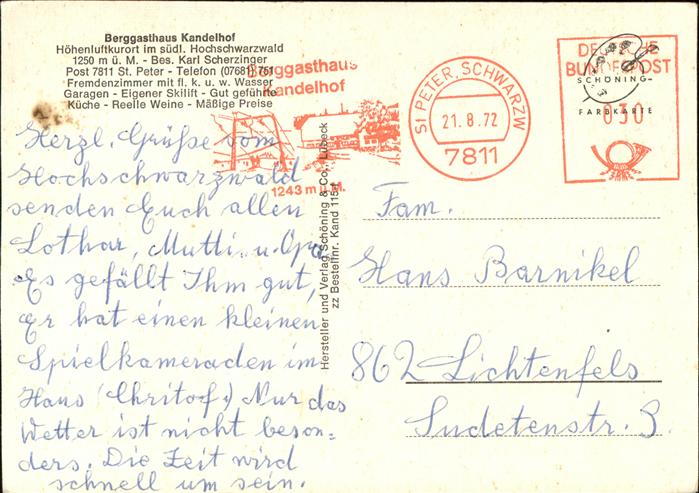 Berggasthaus Kandelhof
Höhenluftkurort im südl. Hochschwarzwald
1250 m ü. M. - Bes. Karl Scherzinger
Post 7811 St. Peter - Telefon (07681) 751
Fremdenzimmer mit fl. k. u. w. Wasser
Garagen - Eigener Skilift - Gut geführte
Küche - Reelle Weine - Mäßige Preise
Berggasthaus
Kandelhof
1243 m ü. M.
ST PETER, SCHWARZW
21.8.72
7811
DEUTSCHE
BUNDESPOST
030
SCHÖNING-
FARBKARTE
Herzl. Grüße vom
Hochschwarzwald
senden Euch allen
Lothar, Mutti u. Opa
Es gefällt Ihm gut,
Er hat einen kleinen
Spielkameraden im
Haus (Chritof.) Nur das
Wetter ist nicht beson-
ders. Die Zeit wird
schnell um sein.
Hersteller und Verlag Schöning & Co., Lübeck
zz Bestellnr. Kand 115
Fam.
Hans Barnikel
862 Lichtenfels
Sudetenstr. 3